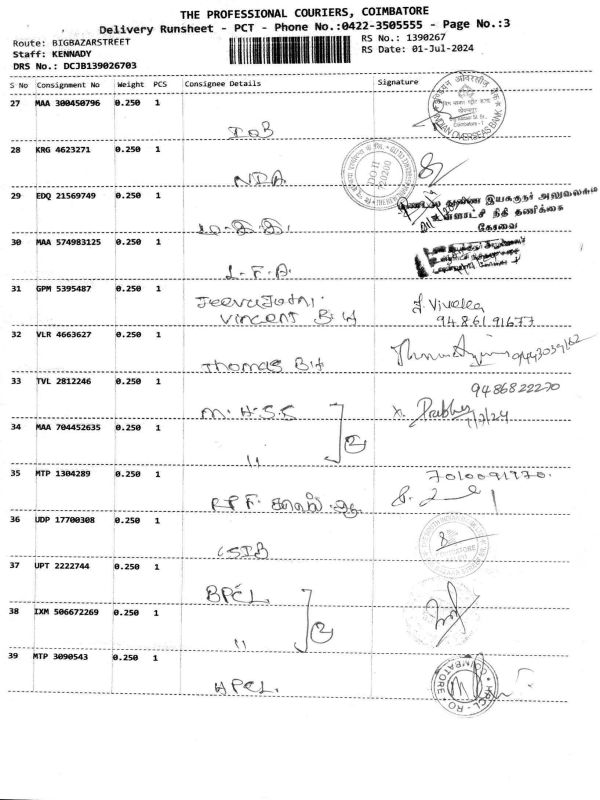 THE PROFESSIONAL COURIERS, COIMBATORE
Delivery Runsheet - PCT - Phone No.:0422-3505555 - Page No.:3
Route: BIGBAZARSTREET
RS No.: 1390267
Staff: KENNADY
RS Date: 01-Jul-2024
DRS No.: DCJB139026703
S No Consignment No Weight PCS Consignee Details Signature
27 MAA 300450796 0.250 1
IOB
INDIAN OVERSEAS BANK
28 KRG 4623271 0.250 1
NIA
29 EDQ 21569749 0.250 1
இயக்குநர் அலுவலகம்
உள்ளாட்சி நிதி தணிக்கை
கோவை
30 MAA 574983125 0.250 1
L.F.A.
31 GPM 5395487 0.250 1
Jeevajothi
Vincent B.H
J. Vivella
94861.91677
32 VLR 4663627 0.250 1
Thomas B.H
9443039162
33 TVL 2812246 0.250 1
M.H.S.S
9486822270
x. Prabhu
1/7/24
34 MAA 704452635 0.250 1
"
2
35 MTP 1304289 0.250 1
RPF.
7010091770.
36 UDP 17700308 0.250 1
CSIB
37 UPT 2222744 0.250 1
BPCL
38 IXM 506672269 0.250 1
"
2
39 MTP 3090543 0.250 1
HPCL
COIMBATORE
HPCL-RO